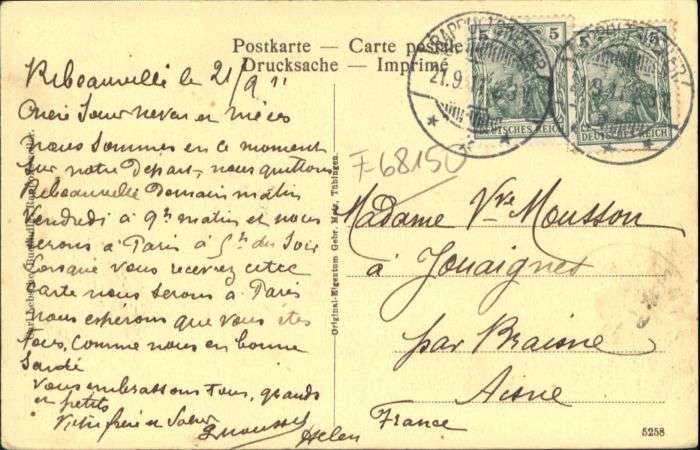 Postkarte – Carte postale
Drucksache – Imprimé
RAPPOLTSWEILER
21.9.
5
5
DEUTSCHES REICH
DEUTSCHES REICH
F-68150
Ribeauvillé le 21/9 11
Chère Sœur neveu et nièces
nous sommes en ce moment
sur notre Depart, nous quittons
Ribeauvillé Demain matin
Vendredi à 9h matin et nous
serons à Paris à 5h du Soir
Lorsque vous recevrez cette
carte nous serons à Paris
nous espérons que vous êtes
Tous, comme nous en bonne
Santé
Vous embrassons Tous, grands
et petits
Votre frère et Sœur
Helen
Original-Eigentum Gebr. Metz, Tübingen.
Madame Vve Mousson
à Jouaignes
par Braisne
Aisne
France
5258